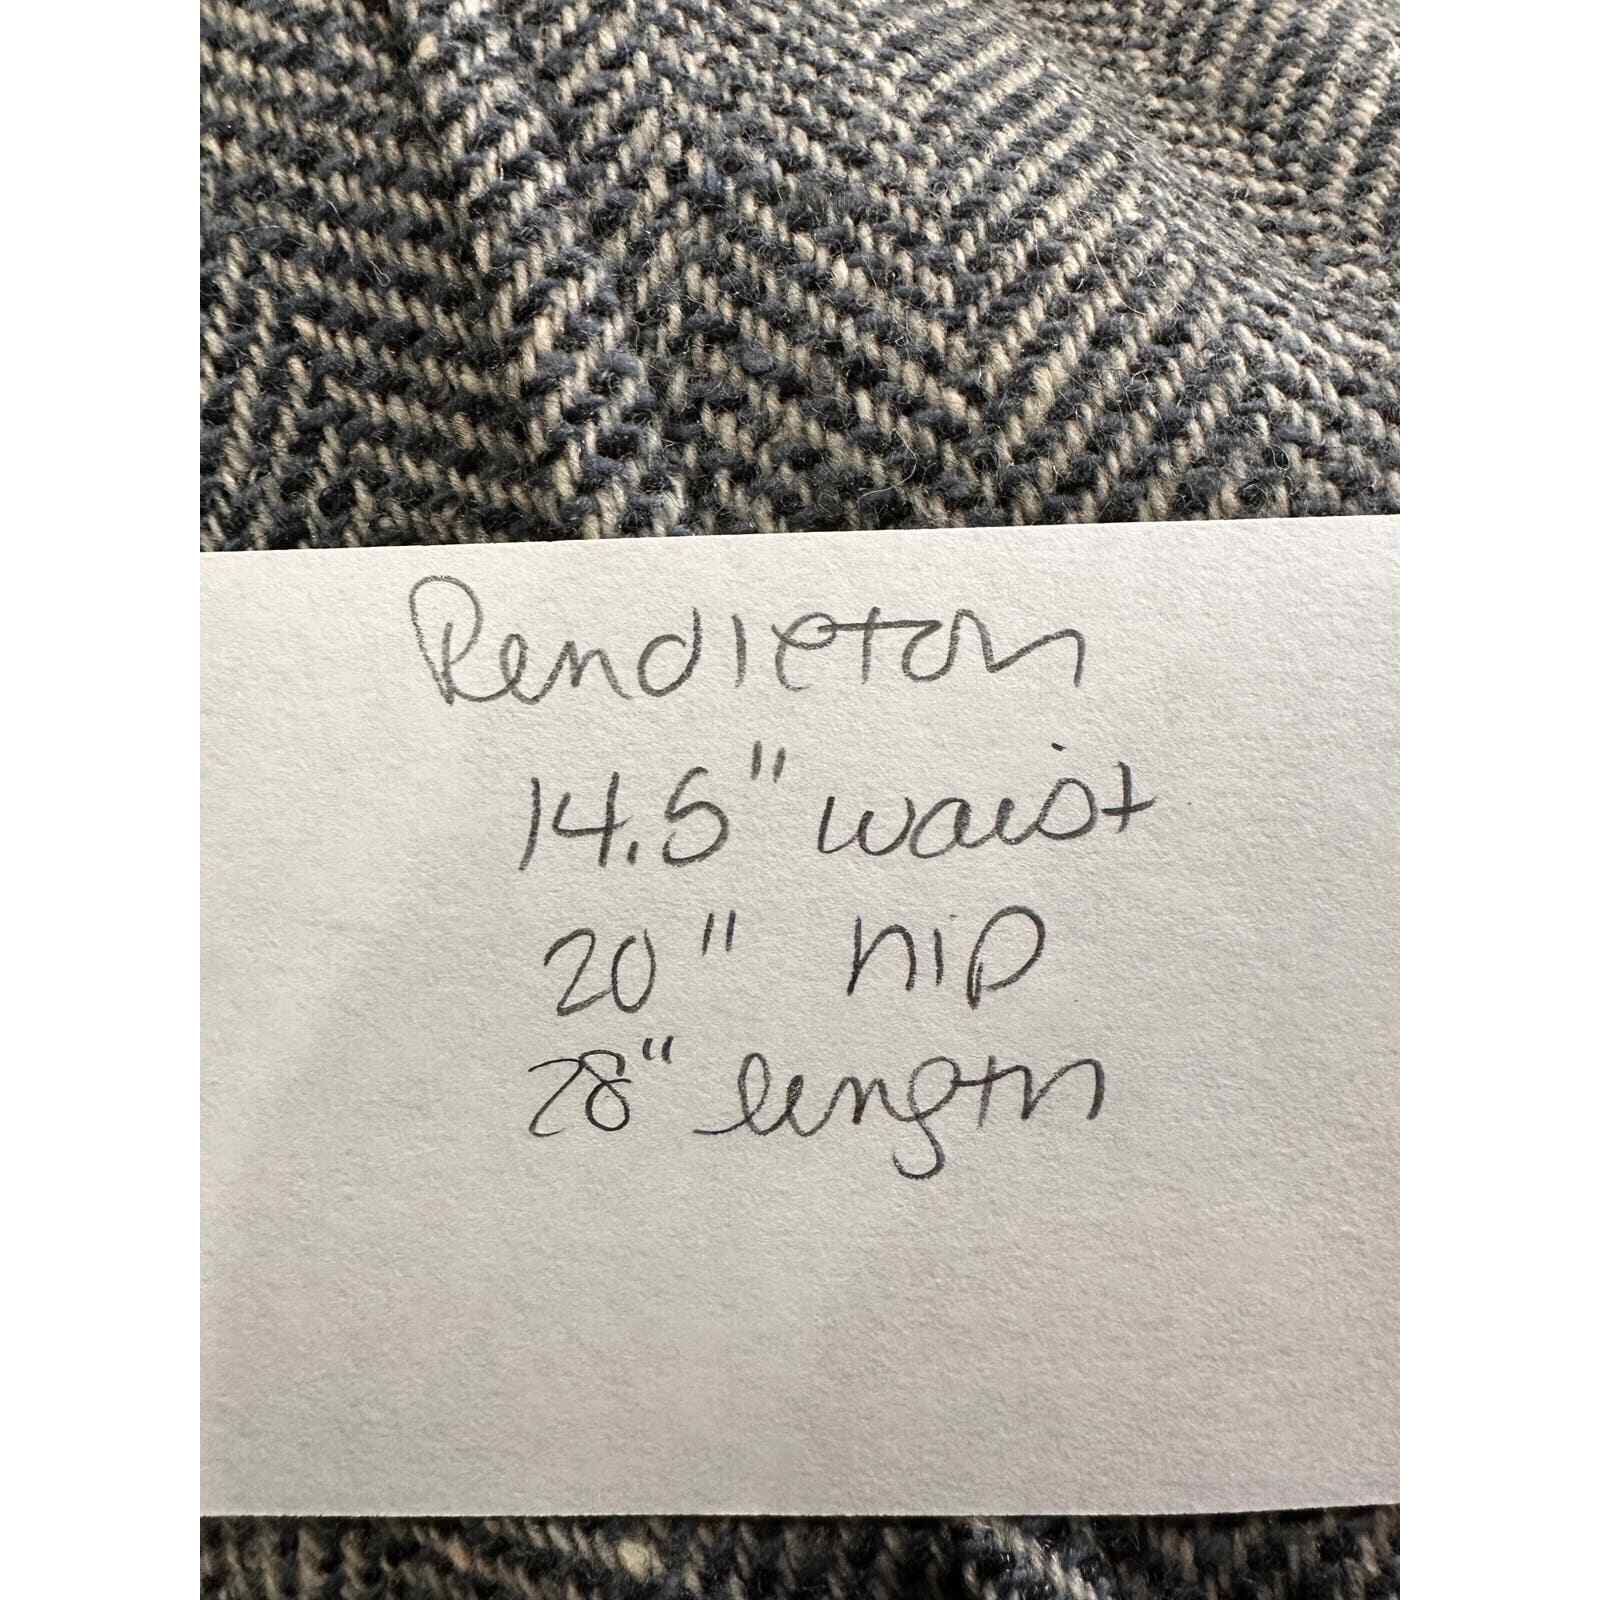 Pendleton
14.5" waist
20" hip
28" length